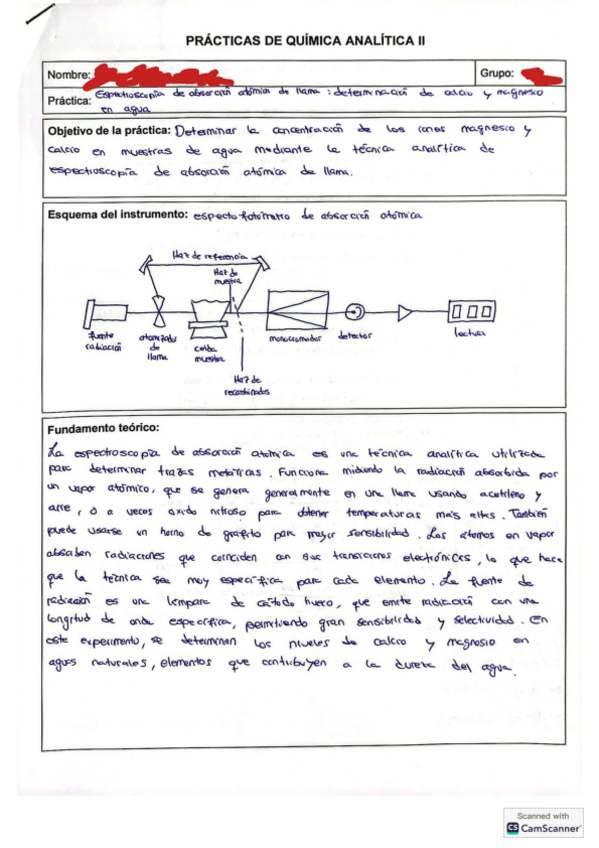 PRÁCTICAS DE QUÍMICA ANALÍTICA II
Nombre:
Grupo:
Práctica: Espectroscopía de absorción atómica de llama: determinación de calcio y magnesio
en agua
Objetivo de la práctica: Determinar la concentración de los iones magnesio y
calcio en muestras de agua mediante la técnica analítica de
espectroscopía de absorción atómica de llama.
Esquema del instrumento: espectofotómetro de absorción atómica
Haz de referencia
Haz de
muestra
fuente
radiación
atomizador
de
llama
celda
muestra
Haz de
recombinados
monocromador
detector
lectura
Fundamento teórico:
La espectroscopía de absorción atómica es una técnica analítica utilizada
para determinar trazas metálicas. Funciona midiendo la radiación absorbida por
un vapor atómico, que se genera generalmente en una llama usando acetileno y
aire, o a veces óxido nitroso para obtener temperaturas más altas. También
puede usarse un horno de grafito para mayor sensibilidad. Los átomos en vapor
absorben radiaciones que coinciden con sus transiciones electrónicas, lo que hace
que la técnica sea muy específica para cada elemento. La fuente de
radiación es una lámpara de cátodo hueco, que emite radiación con una
longitud de onda específica, permitiendo gran sensibilidad y selectividad. En
este experimento, se determinan los niveles de calcio y magnesio en
aguas naturales, elementos que contribuyen a la dureza del agua.
Scanned with
CS CamScanner